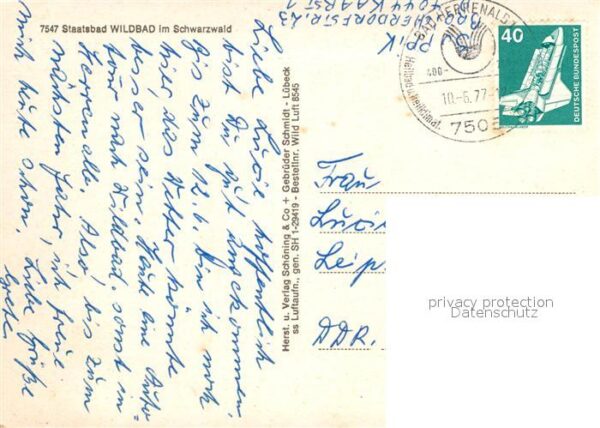 7547 Staatsbad WILDBAD im Schwarzwald
Liebe Lucie hoffentlich
bist Du gut angekommen,
bis zum 12.6. bin ich noch
hier das Wetter könnte
besser sein. Heute eine Auto
tour nach Wildbad, sonst in
Herrenalb. Also, bis zum
nächsten Jahr, ich freue
mich heute schon. Liebe Grüße
Grete.
Herst. u. Verlag Schöning & Co + Gebrüder Schmidt - Lübeck
ss Luftaufn., gen. SH 1-29419 - Bestellnr. Wild Luft 8545
4044 KAARST 1
BAD HERRENALB
10.-6.77
7506
40
DEUTSCHE BUNDESPOST
Frau
Lucie
Leip
DDR.
privacy protection
Datenschutz